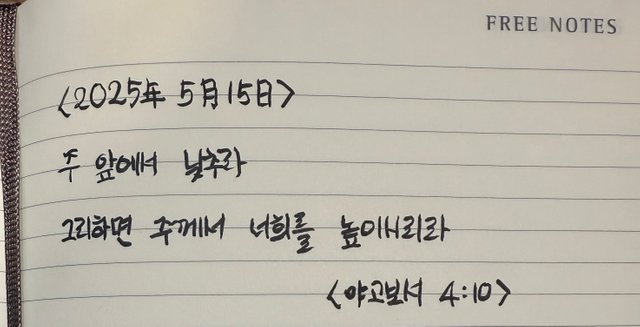 FREE NOTES
<2025年 5月 15日>
주 앞에서 낮추라
그리하면 주께서 너희를 높이시리라
<야고보서 4:10>